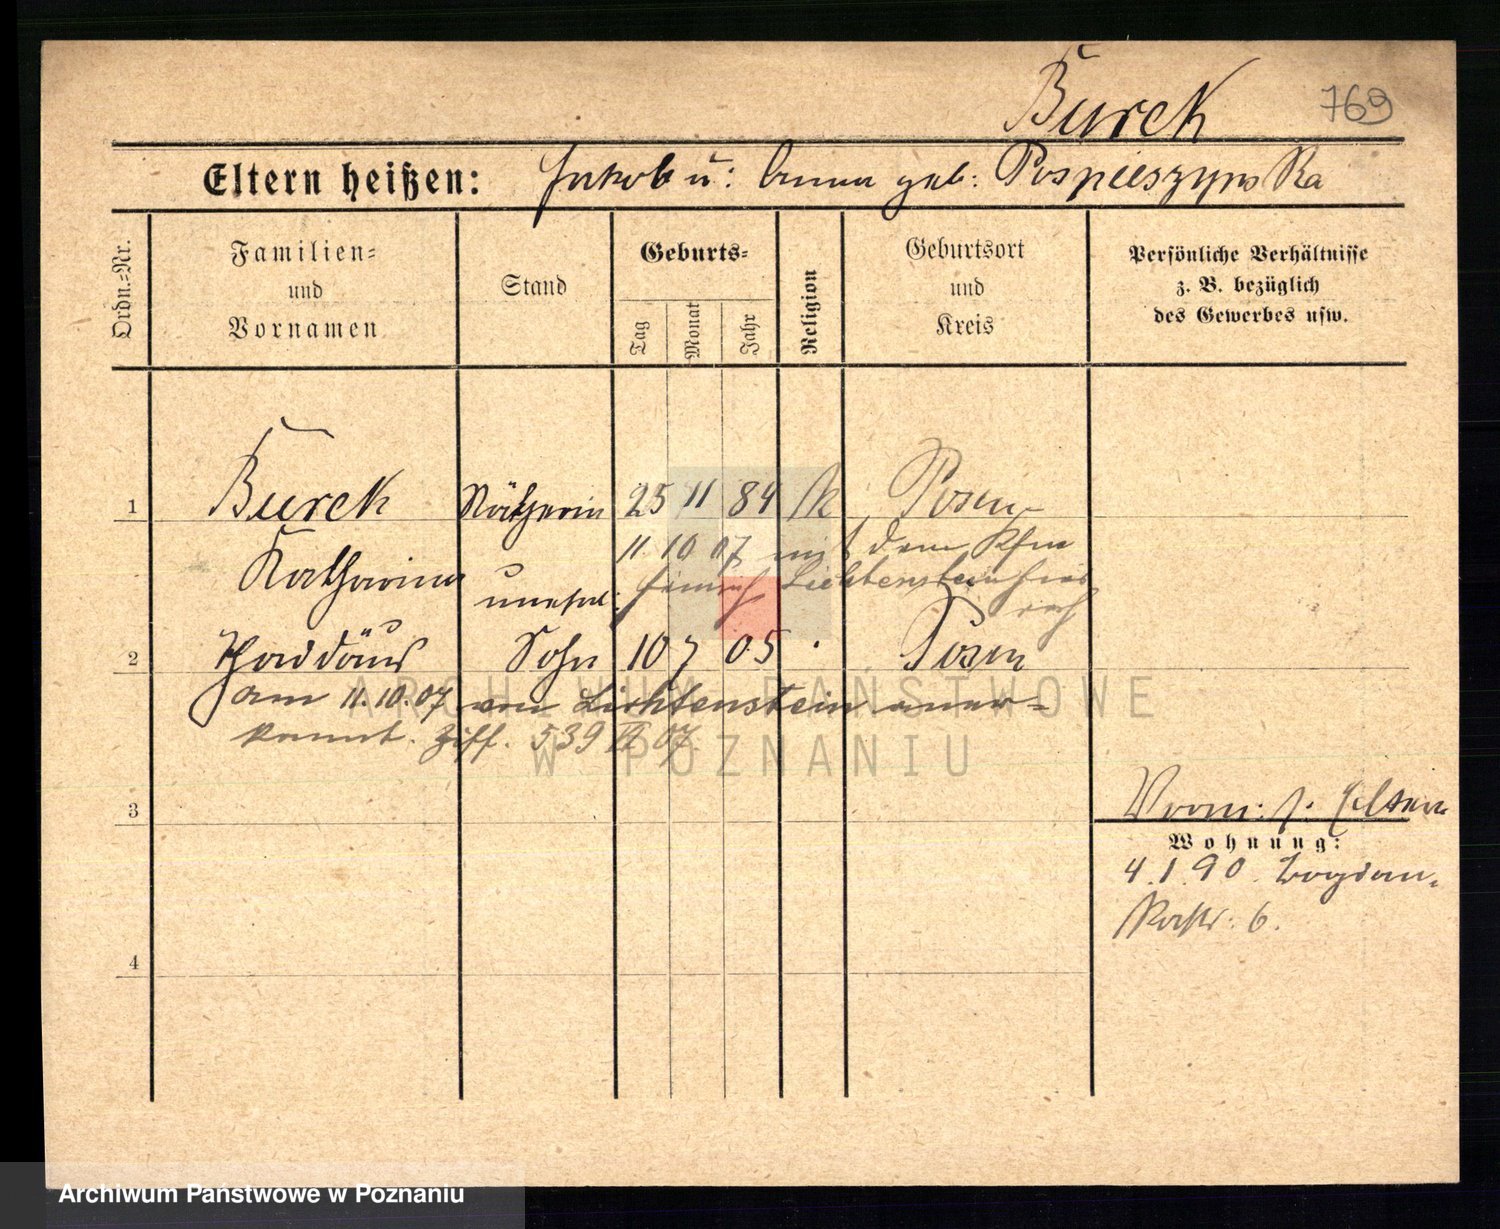 Burck 769
Eltern heißen: Jakob u: Anna geb: Pospieszynska
Ordn.-Nr.
Familien- und Vornamen
Stand
Geburts-
Tag Monat Jahr
Religion
Geburtsort und Kreis
Persönliche Verhältnisse z. B. bezüglich des Gewerbes usw.
1 Burck Nätherin 25 11 84 K Posen
11 10 07 mit dem Kfm
Katharina u
Heinrich Lichtenstein
unehel:
2 Thaddäus Sohn 10 7 05 Posen
am 11.10.07 von Lichtenstein aner-
kannt. Ziff. 539 II 07
3
Vorm: s. Eltern
Wohnung:
4.1.90. Bogdan-
kastr. 6.
4
ARCHIWUM PAŃSTWOWE
W POZNANIU
Archiwum Państwowe w Poznaniu